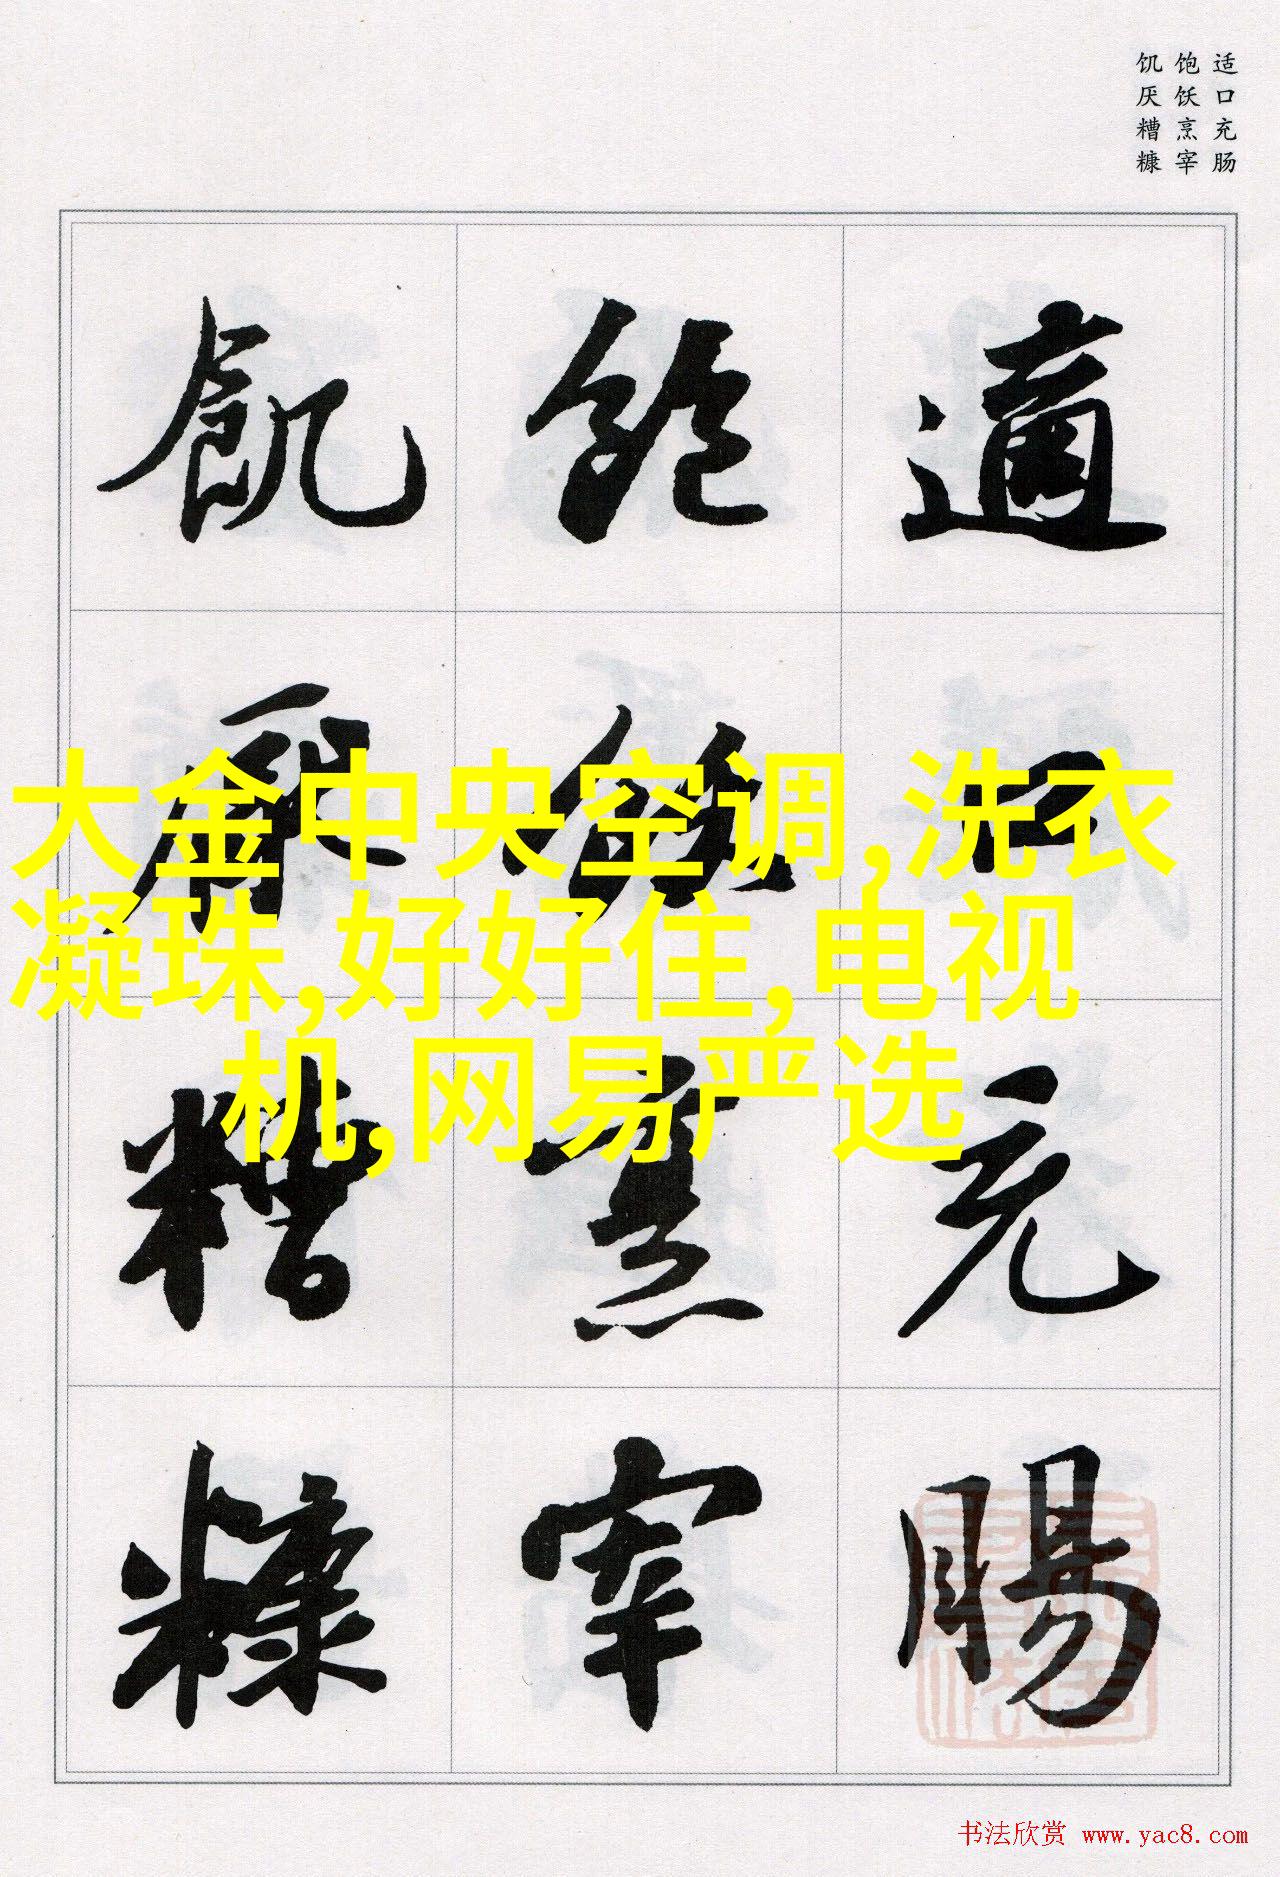 适口充肠
饱饫烹宰
饥厌糟糠
適口充腸
飽飫烹宰
飢厭糟糠
大金中央空调,洗衣
凝珠,好好住,电视
机,网易严选
书法欣赏 www.yac8.com